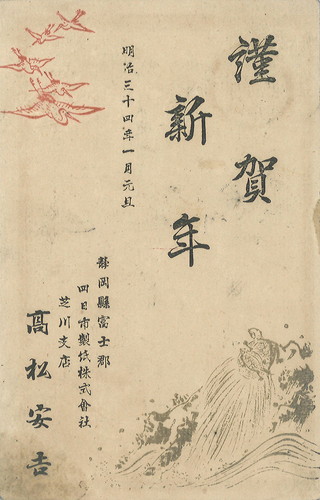 謹賀
新年
明治三十四年一月元旦
靜岡縣富士郡
四日市製紙株式會社
芝川支店
高松安吉